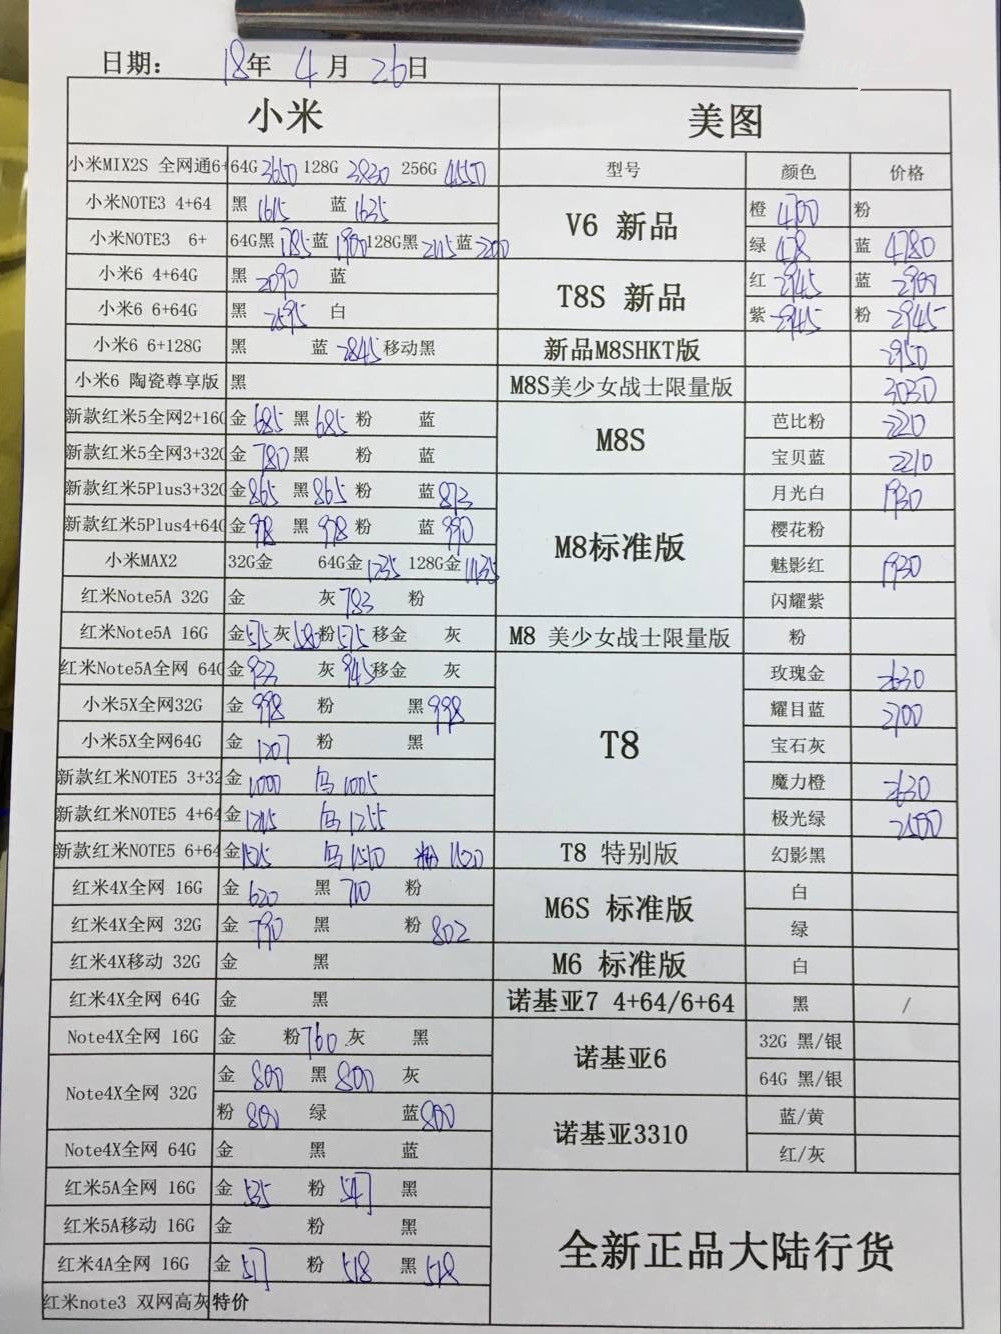 日期： 18年 4月 26日
小米 美图
小米MIX2S 全网通6+ 64G 3650 128G 3830 256G 4550 型号 颜色 价格
小米NOTE3 4+64 黑 1615 蓝 1635 V6 新品 橙 4700 粉
小米NOTE3 6+ 64G黑 蓝 1900 128G黑 2115 蓝 2200 绿 蓝 4780
小米6 4+64G 黑 2090 蓝 T8S 新品 红 2945 蓝
小米6 6+64G 黑 2595 白 紫 2945 粉 2945
小米6 6+128G 黑 蓝 2845 移动黑 新品M8SHKT版 2950
小米6 陶瓷尊享版 黑 M8S美少女战士限量版 3030
新款红米5全网2+16G 金 685 黑 685 粉 蓝 M8S 芭比粉 2210
新款红米5全网3+32G 金 780 黑 粉 蓝 宝贝蓝 2210
新款红米5Plus3+32G 金 865 黑 865 粉 蓝 873 M8标准版 月光白 1930
新款红米5Plus4+64G 金 978 黑 978 粉 蓝 990 樱花粉
小米MAX2 32G金 64G金 1235 128G金 1435 魅影红 1930
红米Note5A 32G 金 灰 783 粉 闪耀紫
红米Note5A 16G 金 575 灰 粉 575 移金 灰 M8 美少女战士限量版 粉
红米Note5A全网 64G 金 933 灰 945 移金 灰 T8 玫瑰金 2630
小米5X全网32G 金 998 粉 黑 998 耀目蓝 2700
小米5X全网64G 金 1207 粉 黑 宝石灰
新款红米NOTE5 3+32 金 1000 乌 1005 魔力橙 2630
新款红米NOTE5 4+64 金 1245 乌 1255 极光绿 2500
新款红米NOTE5 6+64 金 1525 乌 1510 粉 1520 T8 特别版 幻影黑
红米4X全网 16G 金 620 黑 710 粉 M6S 标准版 白
红米4X全网 32G 金 790 黑 粉 802 绿
红米4X移动 32G 金 黑 M6 标准版 白
红米4X全网 64G 金 黑 诺基亚7 4+64/6+64 黑 /
Note4X全网 16G 金 粉 760 灰 黑 诺基亚6 32G 黑/银
Note4X全网 32G 金 800 黑 800 灰 64G 黑/银
粉 800 绿 蓝 800 诺基亚3310 蓝/黄
Note4X全网 64G 金 黑 蓝 红/灰
红米5A全网 16G 金 535 粉 547 黑
红米5A移动 16G 金 粉 黑
红米4A全网 16G 金 517 粉 518 黑 518
全新正品大陆行货
红米note3 双网高灰 特价